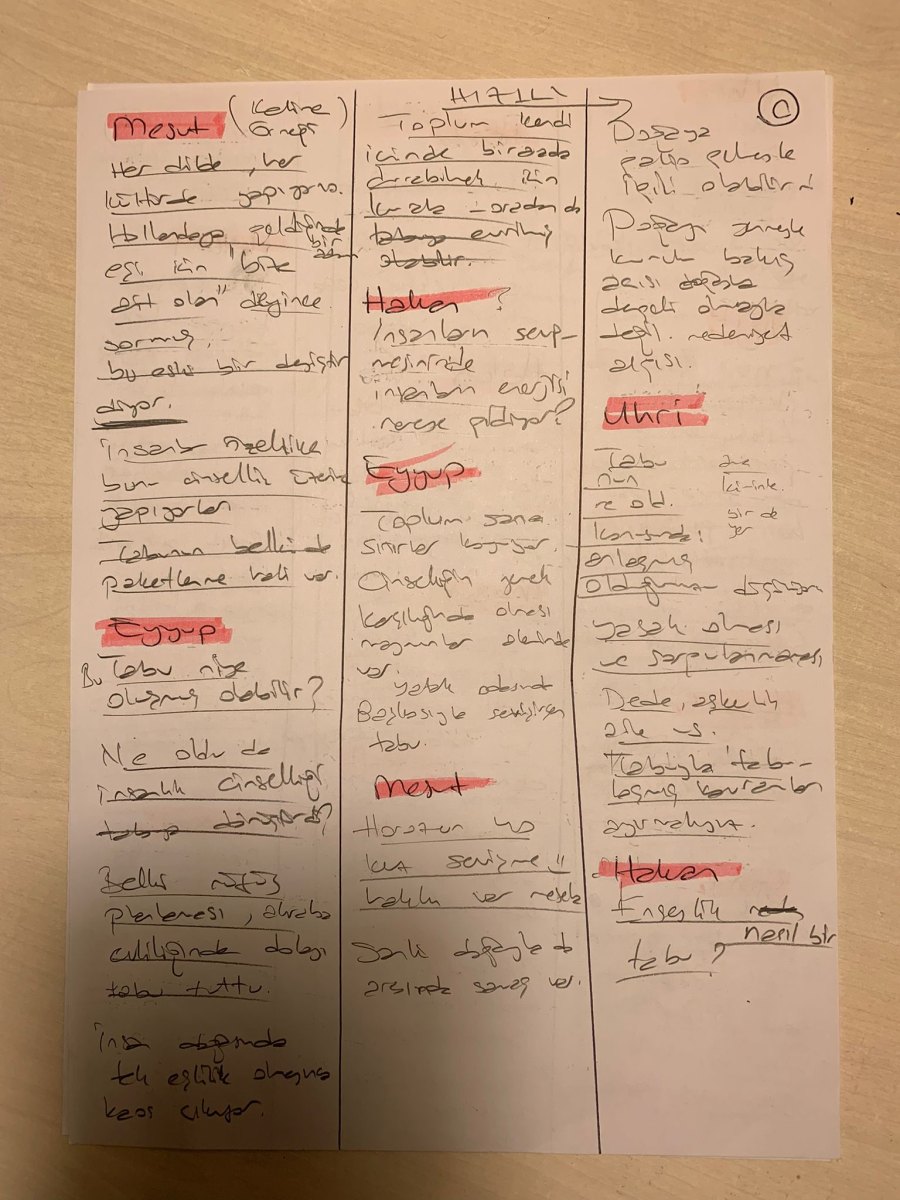 Mesut (Kelime
örneği
Her dilde, her
kültürde yapıyoruz.
Hollandaya geldiğinde
eşi için "bize bir adım
ait olan" deyince
sormuş,
bu eski bir deyiştir
diyor.
İnsanlar özellikle
bunu cinsellik üzerine
yapıyorlar
Tabunun belki de
paketlenme hali var.
Eyyup
Bu Tabu niye
oluşmuş olabilir?
Ne oldu da
insanlık cinselliği
tabuya dönüştürdü?
Belki nüfus
planlaması, akraba
evliliğinde dolayı
tabu tuttu.
İnsan doğasında
tek eşlilik olmayınca
kaos çıkıyor.
HIZLI
Toplum kendi
içinde birarada
durabilmek için
kurala - oradan da
tabuya evrilmiş
olabilir.
Hakan ?
İnsanların seviş-
mesinde
insanların enerjisi
nereye gidiyor?
Eyyup
Toplum sana
sınırlar koyuyor.
Cinselliğin yemek
karşılığında olması
maymunlar aleminde
var.
yatak odasında
Başkasıyla sevişirsen
tabu.
Mesut
Horozun 40
kez sevişme
hakkı var mesela
Sanki doğayla da
arasında savaş var.
0
Doğaya
galip gelmekle
ilgili olabilir mi
Doğayı yenmekle
kurulu bakış
açısı doğayla
dengeli olmayla
değil. medeniyet
algısı.
Uhri
Tabu
nun
ne old.
konusunda
anlaşmış
olduğumuzu düşünüyorum
bir de
yer
yasak olması
ve sorgulanmaması
Dede, askerlik
aile vs.
Tabuyla tabu-
laşmış kavramları
ayırmalıyız.
Hakan
Ensestlik
nasıl bir
tabu?